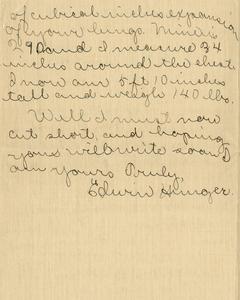 of cubical inches expansion
of your lungs. Mine is
290 and I measure 34
inches around the chest.
I now am 5 ft 10 inches
tall and weigh 140 lbs.
Well I must now
cut short, and hoping
you will write soon I
am Yours Truly,
Edwin